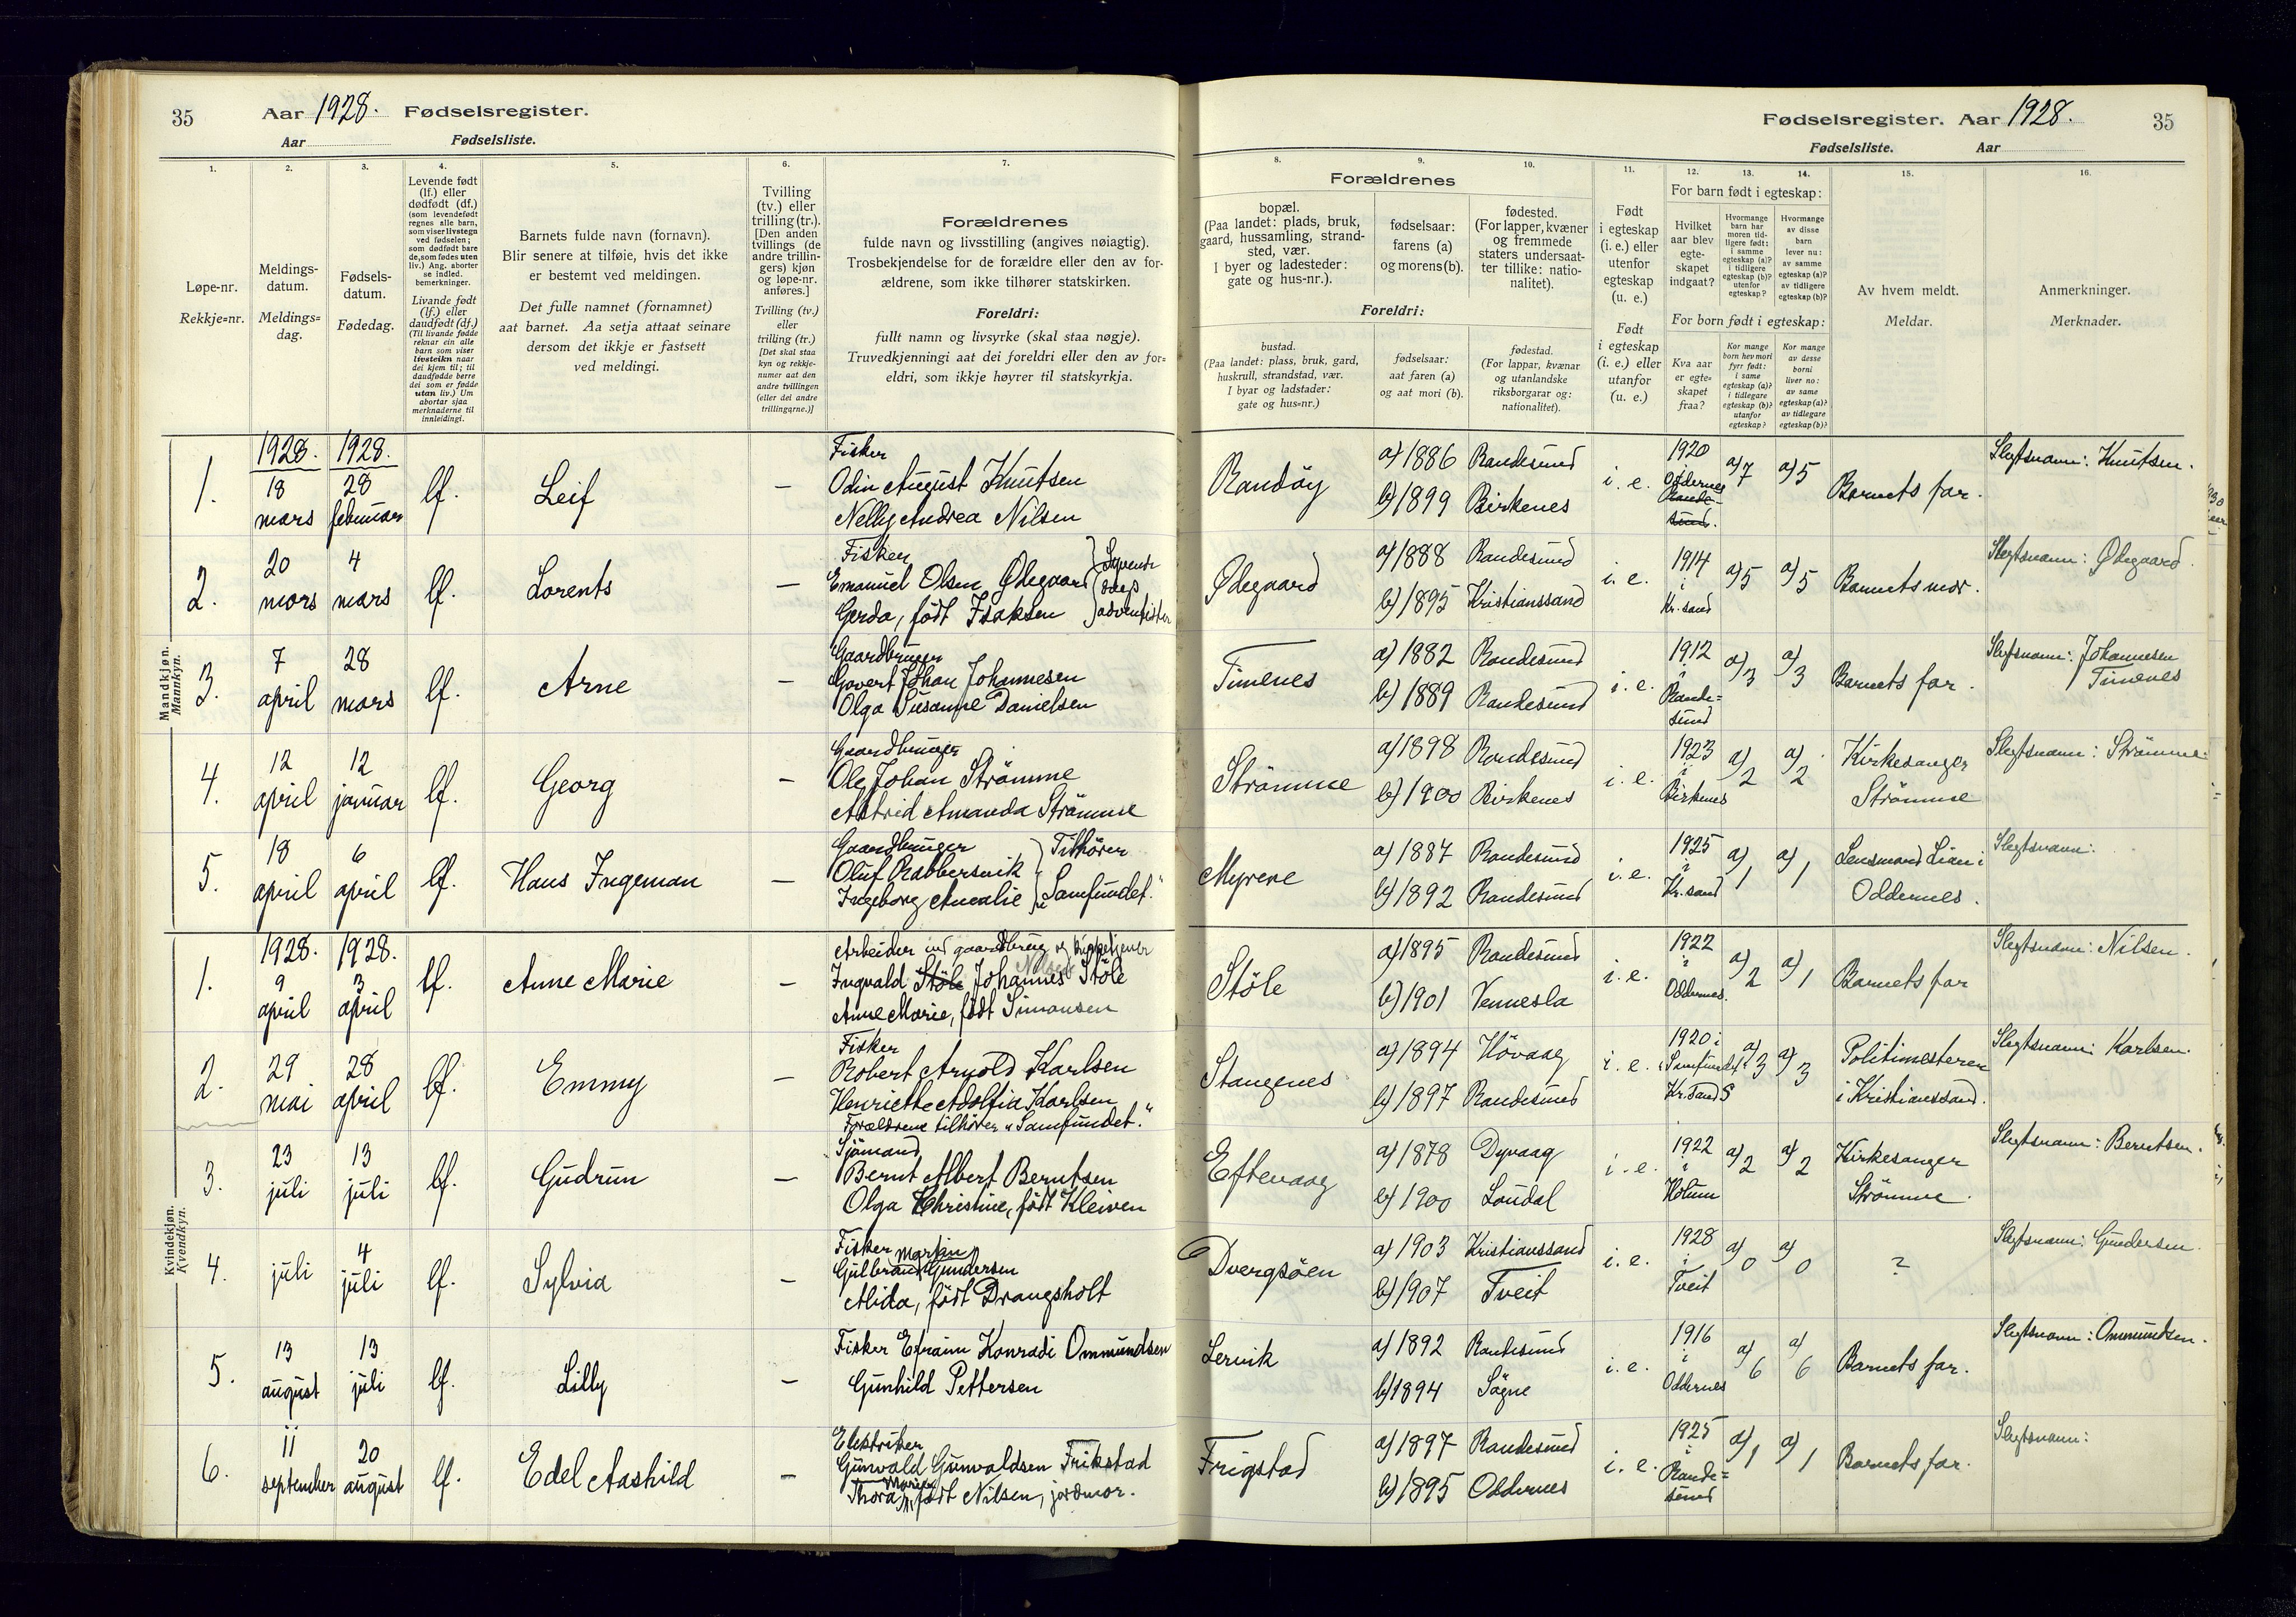 35
Aar 1928. Fødselsregister.
Aar
Fødselsliste.
Fødselsregister. Aar 1928.
35
Fødselsliste.
Aar
1.
Løpe-nr.
Rekkje=nr.
2.
Meldings-
datum.
Meldings=
dag.
3.
Fødsels-
datum.
Fødedag.
4.
Levende født
(lf.) eller
dødfødt (df.)
(som levendefødt
regnes alle barn,
som viser livstegn
ved fødselen;
som dødfødt bare
de, som fødes uten
liv.) Ang. aborter
se indled.
bemerkninger.
Livande født
(lf.) eller
daudfødt (df.)
(Til livande fødde
reknar ein alle
barn som viser
livsteikn naar
dei kjem til; til
daudfødde berre
dei som er fødde
utan liv.) Um
abortar sjaa
merknaderne til
innleidingi.
5.
Barnets fulde navn (fornavn).
Blir senere at tilføie, hvis det ikke
er bestemt ved meldingen.
Det fulle namnet (fornamnet)
aat barnet. Aa setja attaat seinare
dersom det ikkje er fastsett
ved meldingi.
6.
Tvilling
(tv.) eller
trilling (tr.).
[Den anden
tvillings (de
andre trillin-
gers) kjøn
og løpe-nr.
anføres.]
Tvilling (tv.)
eller
trilling (tr.)
[Det skal staa
kyn og rekkje-
numer aat den
andre tvillingen
(eller dei andre
trillingarne.)]
7.
Forældrenes
fulde navn og livsstilling (angives nøiagtig).
Trosbekjendelse for de forældre eller den av for-
ældrene, som ikke tilhører statskirken.
Foreldri:
fullt namn og livsyrke (skal staa nøgje).
Truvedkjenningi aat dei foreldri eller den av for=
eldri, som ikkje høyrer til statskyrkja.
8.
Forældrenes
bopæl.
(Paa landet: plads, bruk,
gaard, hussamling, strand-
sted, vær.
I byer og ladesteder:
gate og hus-nr.).
9.
fødselsaar:
farens (a)
og morens (b).
10.
fødested.
(For lapper, kvæner
og fremmede
staters undersaat-
ter tillike: natio-
nalitet).
Foreldri:
bustad.
(Paa landet: plass, bruk, gard,
huskrull, strandstad, vær.
I byar og ladstader:
gate og hus=nr.)
fødselsaar:
aat faren (a)
og aat mori (b).
fødestad.
(For lappar, kvænar
og utanlandske
riksborgarar og:
nationalitet).
11.
Født
i egteskap
(i. e.) eller
utenfor
egteskap
(u. e.)
Født
i egteskap
(i. e.) eller
utanfor
(u. e.)
12.
13.
14.
For barn født i egteskap:
Hvilket
aar blev
egte-
skapet
indgaat?
Hvormange
barn har
moren tid-
ligere født:
i samme
egteskap (a)?
i tidligere
egteskap (b)?
utenfor
egteskap?
Hvormange
av disse
barn
lever nu:
av samme
egteskap (a)?
av tidligere
egteskap (b)?
For born født i egteskap:
Kva aar
er egte=
skapet
fraa?
Kor mange
born hev mori
fyrr født:
i same
egteskap (a)?
i tidlegare
egteskap (b)?
utanfor
egteskap?
Kor mange
av desse
borni
liver no:
av same
egteskap (a)?
av tidlegare
egteskap (b)?
15.
Av hvem meldt.
Meldar.
16.
Anmerkninger.
Merknader.
Mandkjøn.
Mannkyn.
1928. 1928.
1. 18 mars 28 februar lf. Leif —
Fisker
Odin August Knutsen
Nelly Andrea Nilsen
Randöy a) 1886 Randesund i. e. 1920 Oddernes Rande-sund. a) 7 a) 5 Barnets far. Slegtsnavn: Knutsen.
b) 1899 Birkenes
2. 20 mars 4 mars lf. Lorents —
Fisker
Emanuel Olsen Ødegaard
Gerda, født Isaksen
Syvende dags adventister
Ødegaard a) 1888 Randesund i. e. 1914 i Kr.sand a) 5 a) 5 Barnets mor. Slegtsnavn: Ødegaard.
b) 1895 Kristianssand
3. 7 april 28 mars lf. Arne —
Gaardbruger
Govert Johan Johannesen
Olga Susanne Danielsen
Timenes a) 1882 Randesund i. e. 1912 i Rande=sund a) 3 a) 3 Barnets far. Slegtsnavn: Johannesen Timenes
b) 1889 Randesund
4. 12 april 12 januar lf. Georg —
Gaardbruger
Ole Johan Strömme
Astrid Amanda Strömme
Strömme a) 1898 Randesund i. e. 1923 i Birkenes a) 2 a) 2 Kirkesanger Strömme Slegtsnavn: Strömme.
b) 1900 Birkenes
5. 18 april 6 april lf. Hans Ingeman —
Gaardbruger
Oluf Rabbersvik
Ingeborg Amalie
Tilhører "Samfundet."
Myrene a) 1887 Randesund i. e. 1925 i Kr.sand a) 1 a) 1 Lensmand Lian i Oddernes. Slegtsnavn:
b) 1892 Randesund
Kvindekjøn.
Kvendkyn.
1928. 1928.
1. 9 april 3 april lf. Anne Marie —
Arbeider ved gaardbrug og
Ingvald Stöle Johannes Nilsen Stöle
Anne Marie, født Simonsen
Stöle a) 1895 Randesund i. e. 1922 i Oddernes. a) 2 a) 1 Barnets far Slegtsnavn: Nilsen.
b) 1901 Vennesla
2. 29 mai 28 april lf. Emmy —
Fisker
Robert Arnold Karlsen
Henriette Adolfia Karlsen
Forældrene tilhører "Samfundet."
Stangenes a) 1894 Hövaag i. e. 1920 i "Samfundet" Kr.sand S a) 3 a) 3 Politimesteren i Kristianssand. Slegtsnavn: Karlsen.
b) 1897 Randesund
3. 23 juli 13 juli lf. Gudrun —
Sjömand
Bernt Albert Berntsen
Olga Christine, født Kleiven
Eftevaag a) 1878 Dyvaag i. e. 1922 i Holum a) 2 a) 2 Kirkesanger Strömme. Slegtsnavn: Berntsen.
b) 1900 Loudal
4. juli 4 juli lf. Sylvia —
Fisker
Gulbrand Martin Gundersen
Alida, født Drangsholt
Dvergsöen a) 1903 Kristianssand i. e. 1928 i Tveit a) 0 a) 0 ? Slegtsnavn: Gundersen.
b) 1907 Tveit
5. 13 august 13 juli lf. Lilly —
Fisker Efraim Konradi Ommundsen
Gunhild Pettersen
Lervik a) 1892 Randesund i. e. 1916 i Oddernes a) 6 a) 6 Barnets far. Slegtsnavn: Ommundsen.
b) 1894 Sögne
6. 11 september 20 august lf. Edel Aashild —
Elektriker
Gunvald Gunvaldsen Frikstad
Thora Marie, født Nilsen, jordmor.
Frigstad a) 1897 Randesund i. e. 1925 i Rande=sund a) 1 a) 1 Barnets far. Slegtsnavn:
b) 1895 Oddernes